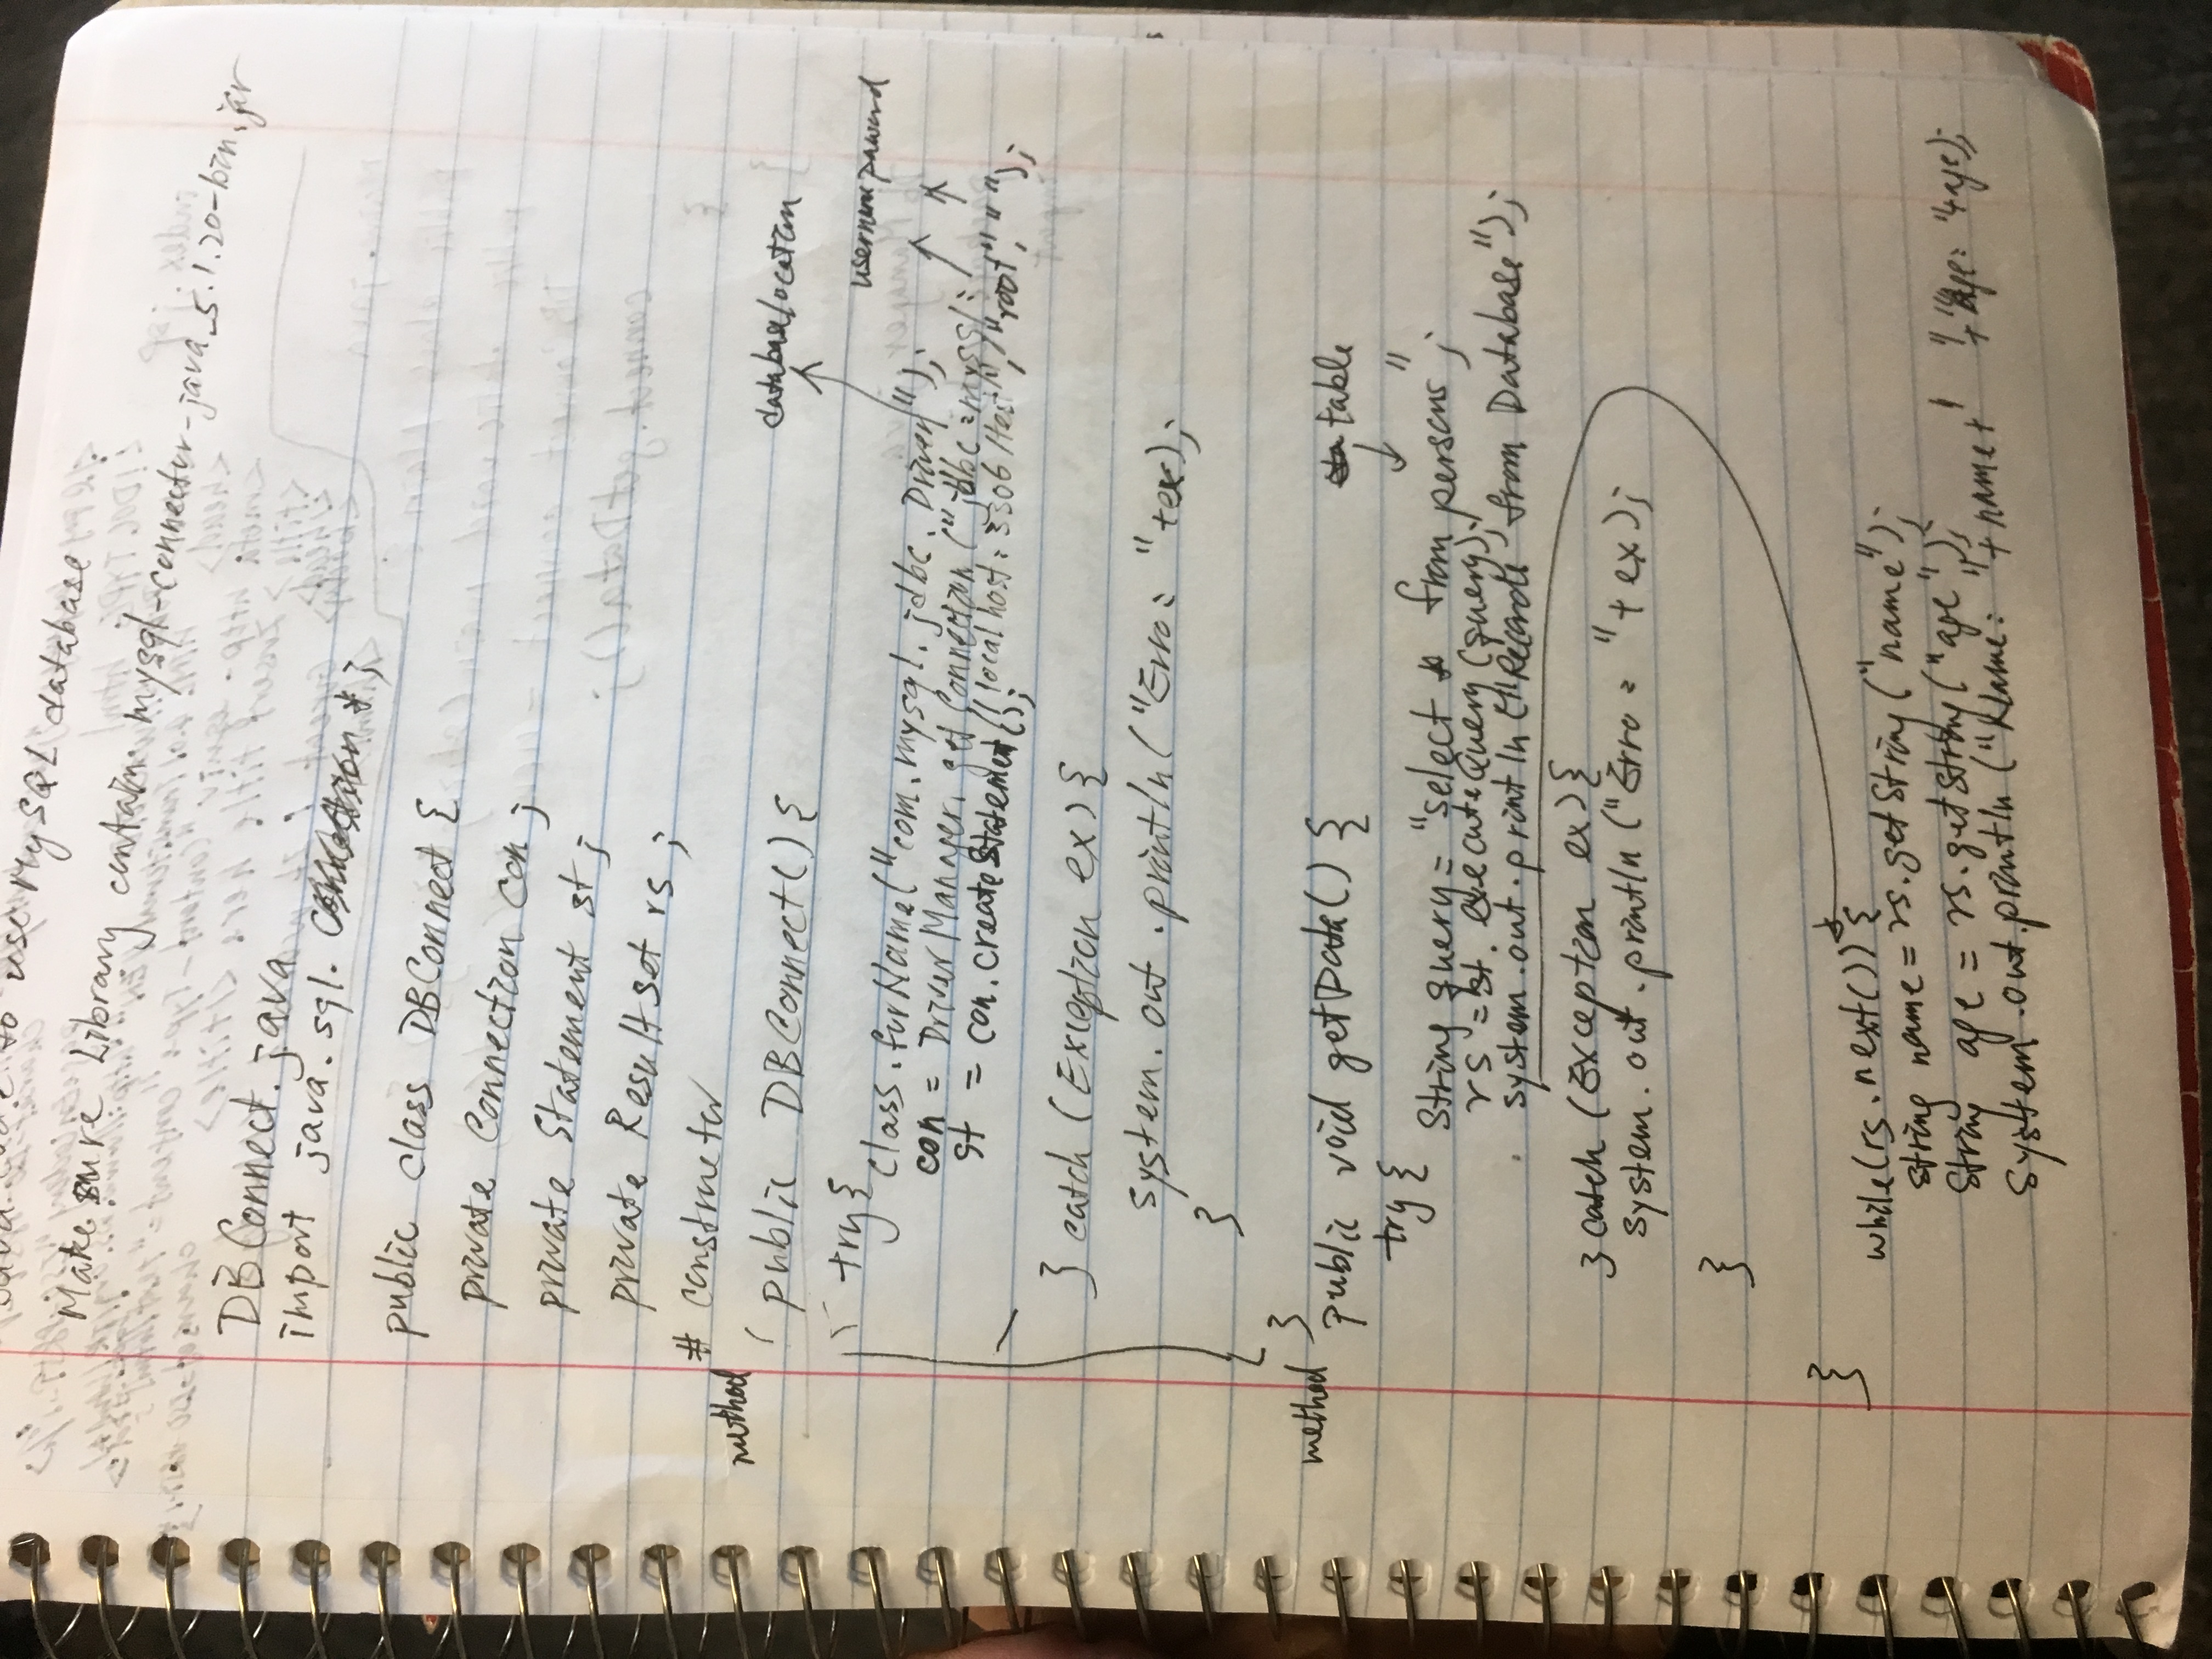 Java code to use MySQL database
Make sure Library contain mysql-connector-java_5.1.20-bin.jar
DBConnect.java
import java.sql. Connection *;
public class DBConnect {
private Connection con;
private Statement st;
private Resultset rs;
# constructor
method
public DBConnect(){
databaselocation
try{
username paword
class.forName("com.mysql.jdbc.Driver");
con = DriverManager.getConnection("jdbc:mysql:
//localhost:3306/test","root","");
st = con.createStatement();
} catch (Exception ex){
system.out.println("Erro: "+ex);
}
}
method
public void getData() {
table
try{
String query="select * from persons";
rs =st.executeQuery(query);
system.out.println("Records from Database");
} catch (Exception ex){
system.out.println("Erro: "+ex);
}
}
while(rs.next()) {
string name=rs.getString("name");
String age = rs.getString("age");
System.out.println("Name: "+name+" "+"Age: "+age);